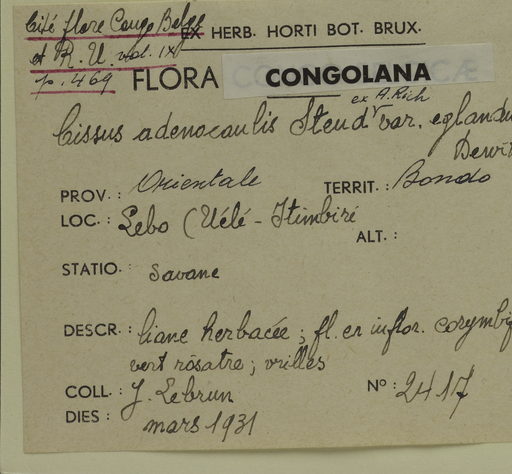 Cité flore Congo Belge
et R. U. vol. IX
p. 469
EX HERB. HORTI BOT. BRUX.
FLORA CONGOLANA
ex A. Rich
Cissus adenocaulis Steud var. eglandu
Dewit
PROV.: Orientale TERRIT.: Bondo
LOC.: Lebo (Uélé - Itimbiri
ALT.:
STATIO. Savane
DESCR.: liane herbacée; fl. en inflor. corymbif
vert rosatre; vrilles
COLL.: J. Lebrun No: 2417
DIES: mars 1931